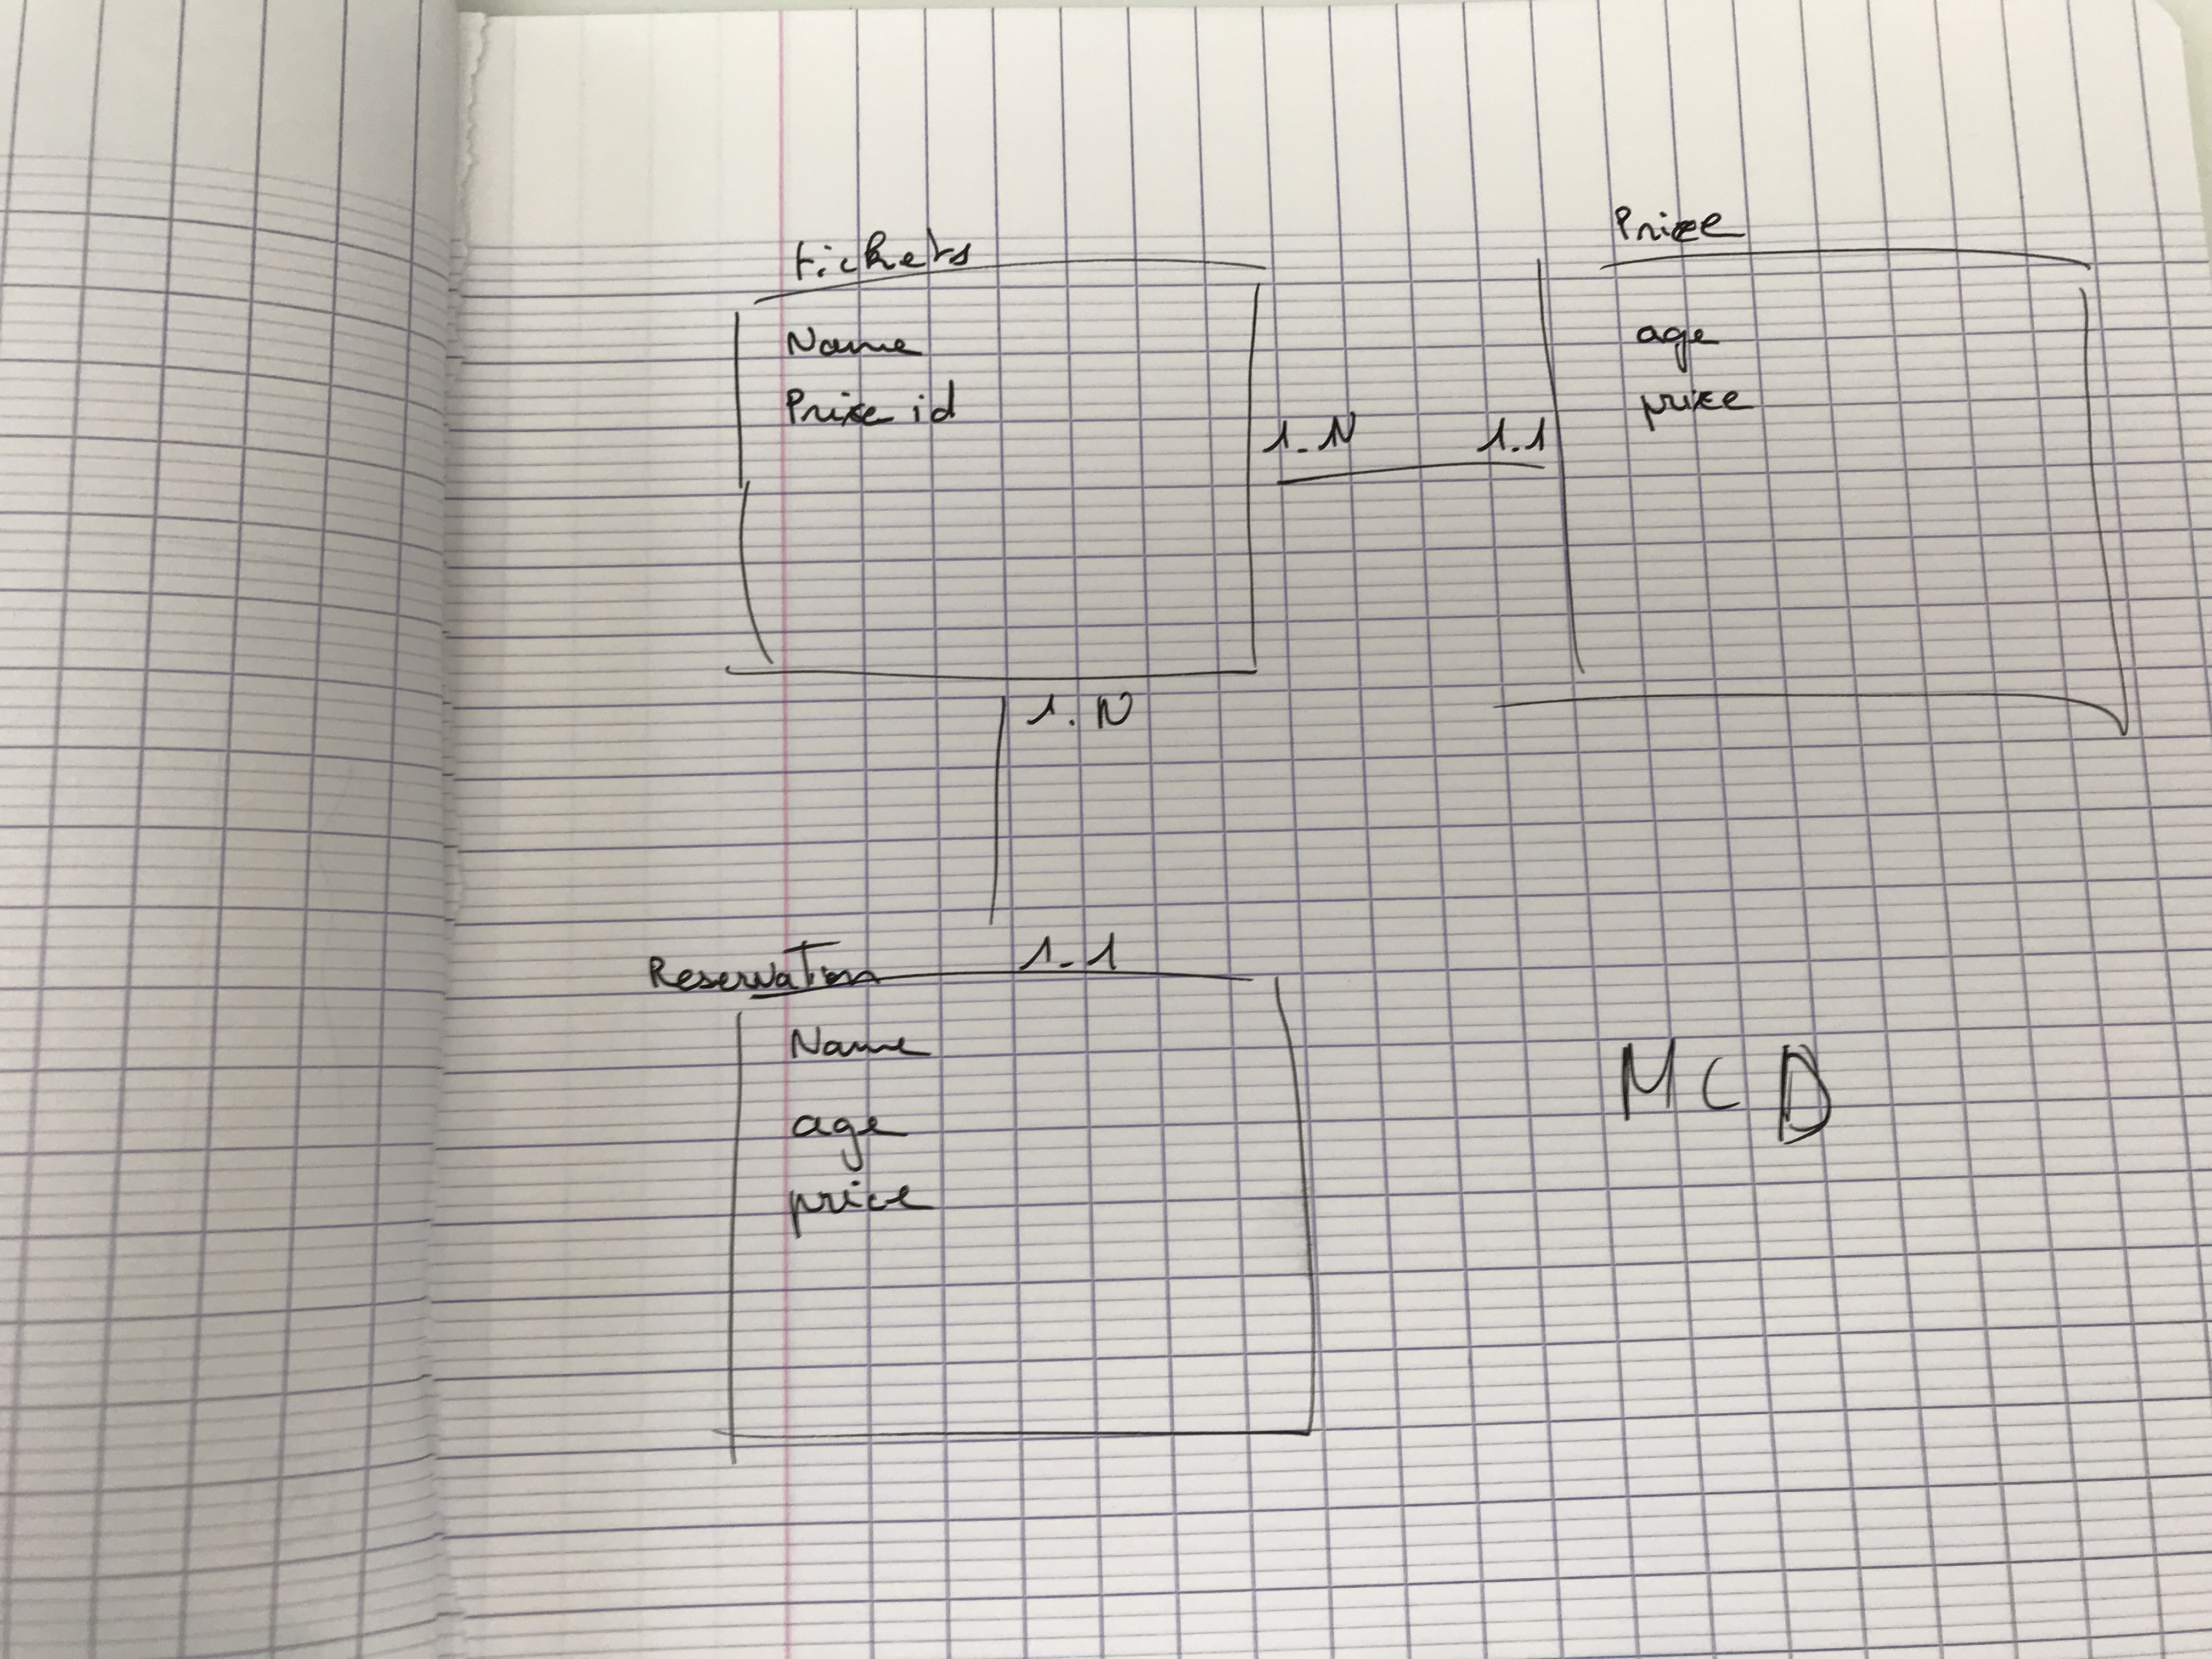 tickets
Name
Price id
1-N
1.1
Price
age
price
1.N
1-1
Reservation
Name
age
price
MCD